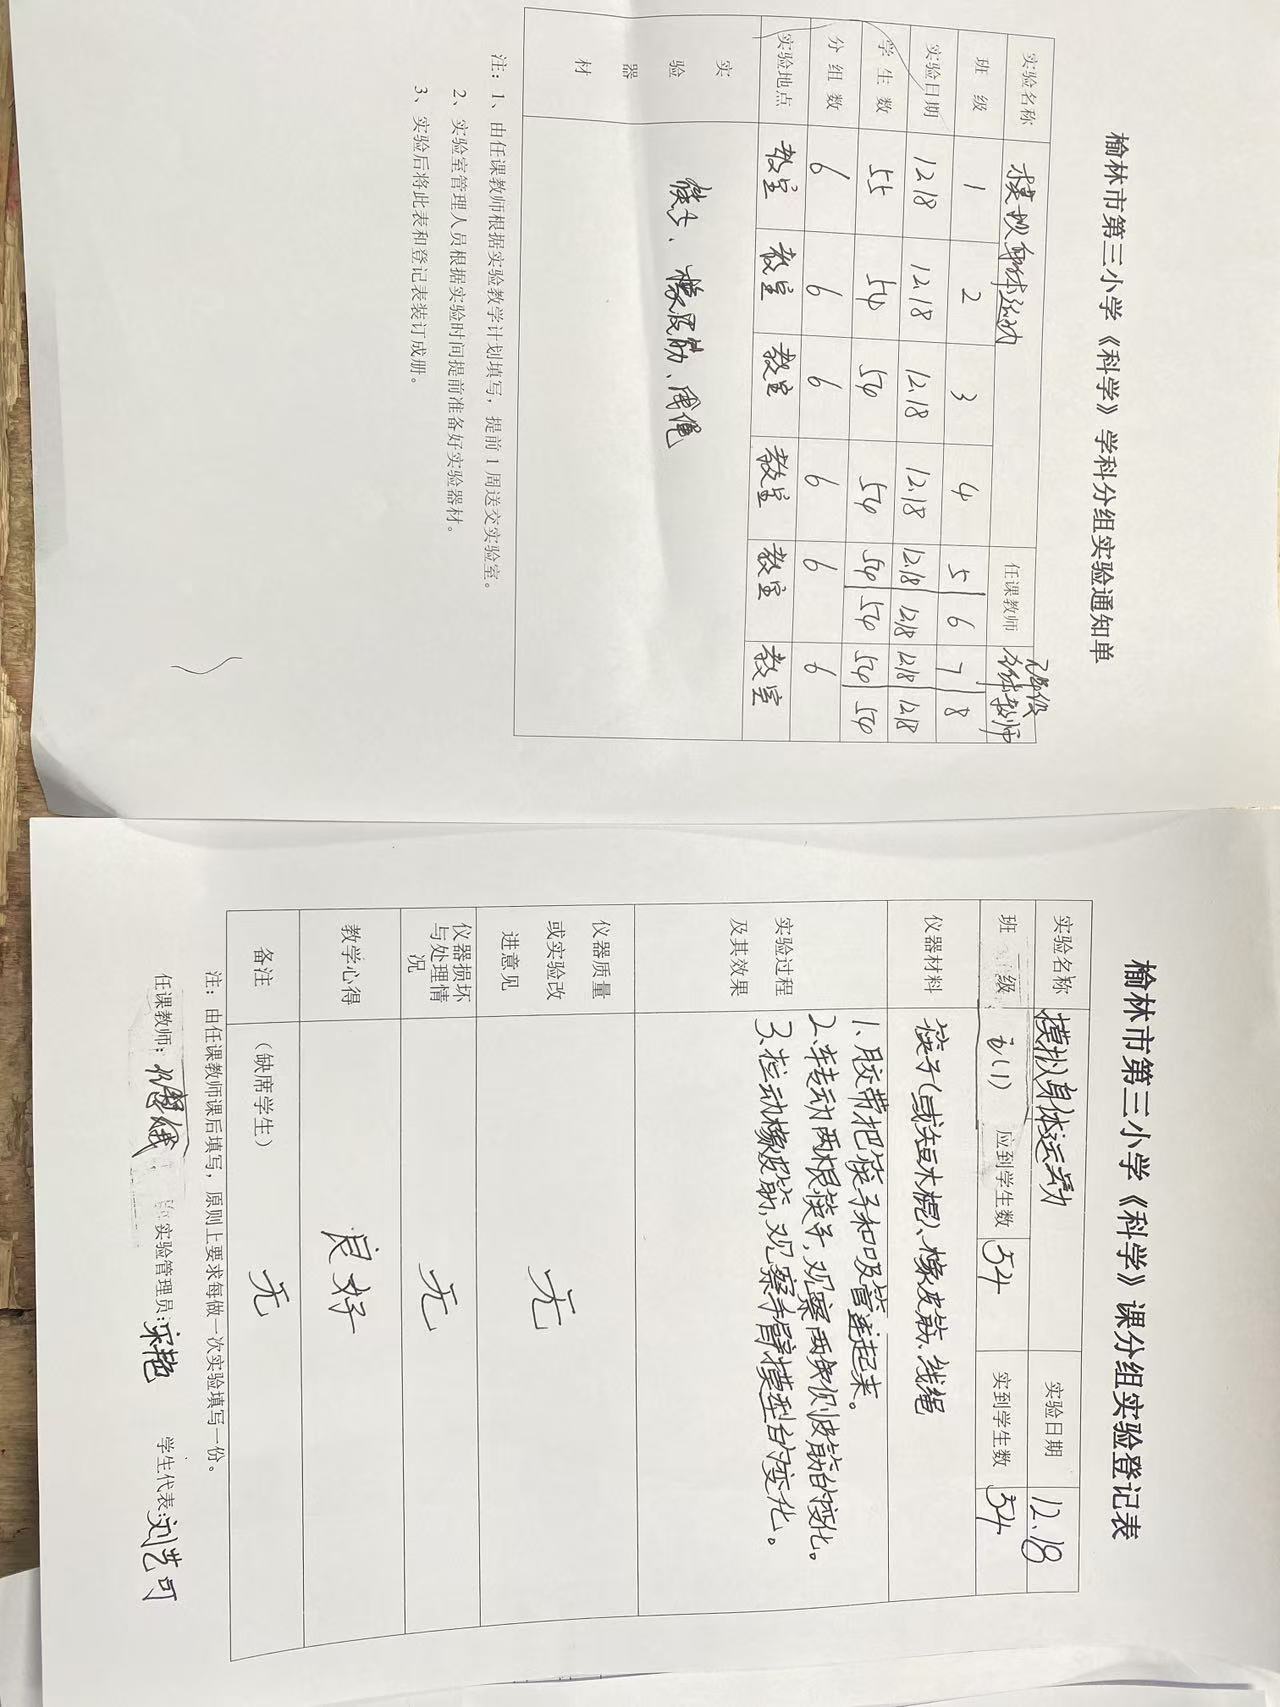 榆林市第三小学《科学》学科分组实验通知单
实验名称 模拟身体运动 任课教师 任教师
班级 1 2 3 4 5 6 7 8
实验日期 12.18 12.18 12.18 12.18 12.18 12.18 12.18 12.18
学生数 55 54 54 54 54 54 54 54
分组数 6 6 6 6 6 6
实验地点 教室 教室 教室 教室 教室 教室
实验器材 筷子、橡皮筋、线绳
注：1、由任课教师根据实验教学计划填写，提前1周送交实验室。
2、实验室管理人员根据实验时间提前准备好实验器材。
3、实验后将此表和登记表装订成册。
榆林市第三小学《科学》课分组实验登记表
实验名称 模拟身体运动 实验日期 12.18
班级 (1) 应到学生数 54 实到学生数 54
仪器材料 筷子(或短木棍)、橡皮筋、线绳
实验过程及其效果 1.胶带把筷子和吸管连起来。
2.转动两根筷子,观察两侧皮筋的变化。
3.拉动橡皮筋,观察手臂模型的变化。
仪器质量或实验改进意见 无
仪器损坏与处理情况 无
教学心得 良好
备注 (缺席学生) 无
注：由任课教师课后填写，原则上要求每做一次实验填写一份。
任课教师: 实验管理员:宋艳 学生代表:刘艺可